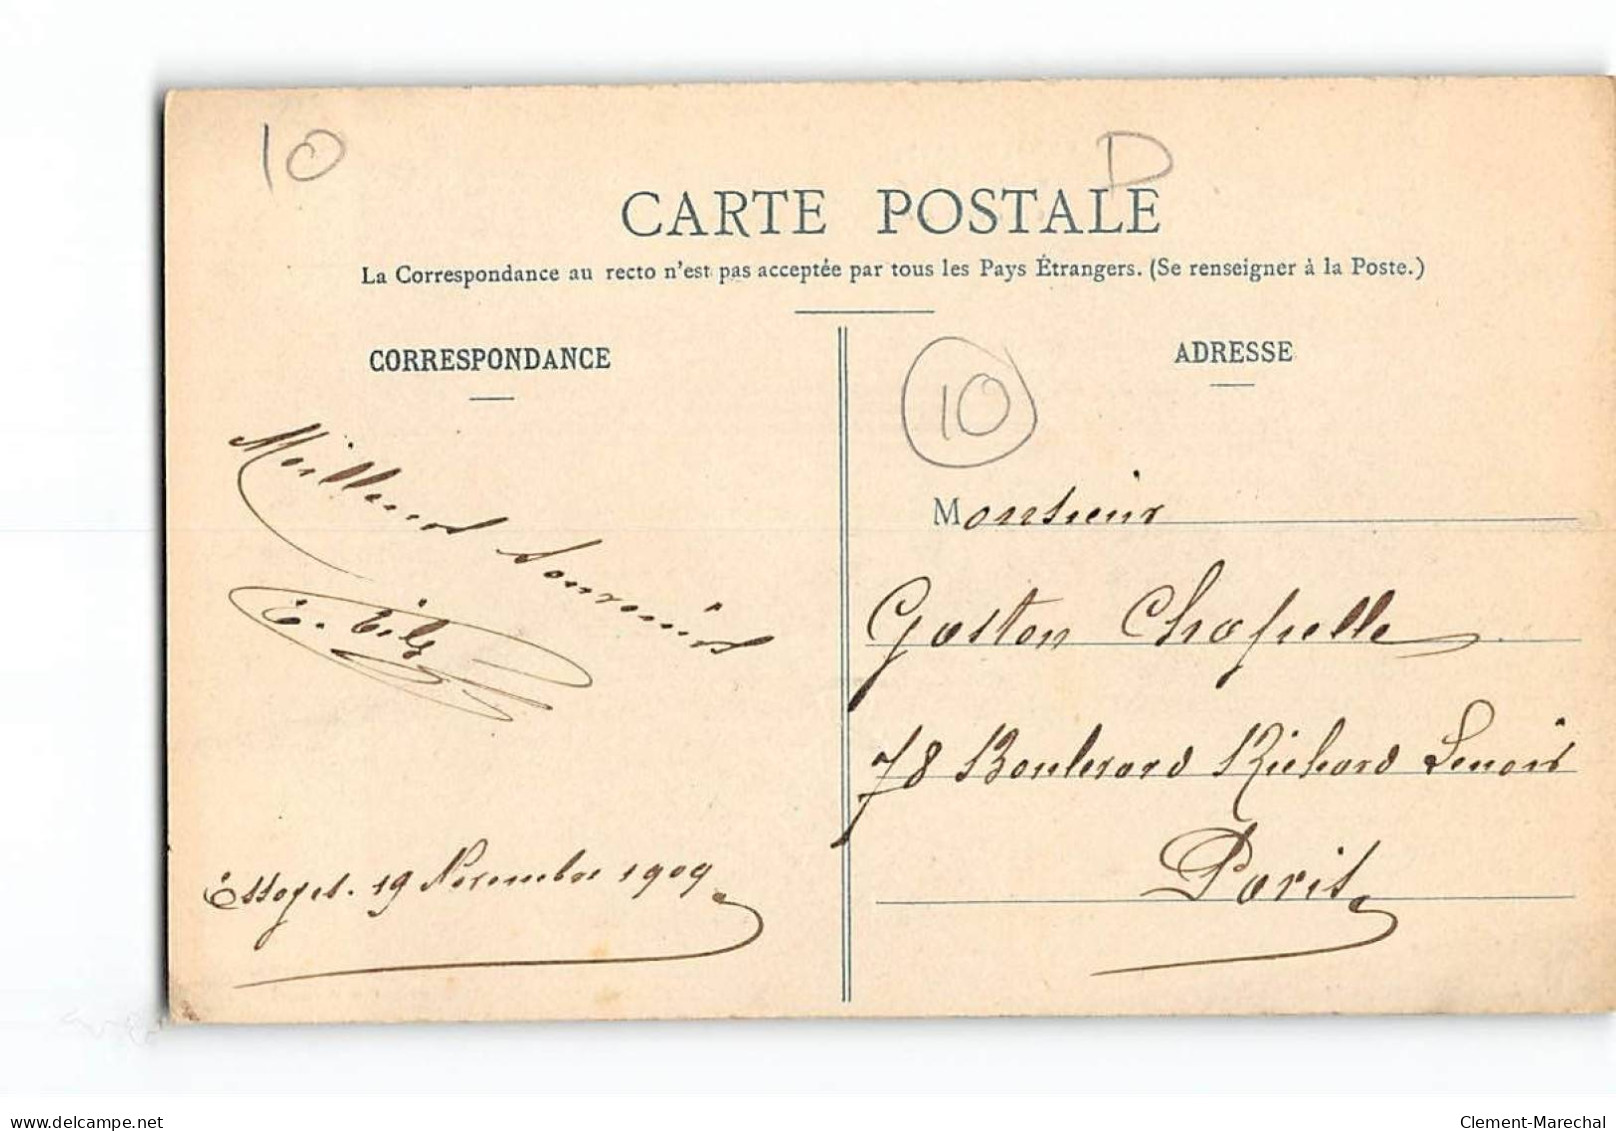 10
D
CARTE POSTALE
La Correspondance au recto n'est pas acceptée par tous les Pays Étrangers. (Se renseigner à la Poste.)
CORRESPONDANCE
Meilleurs Souvenirs
Essoyes. 19 Novembre 1909
ADRESSE
10
Monsieur
Gaston Chapelle
78 Boulevard Richard Lenoir
Paris
delcampe.net
Clement-Marechal